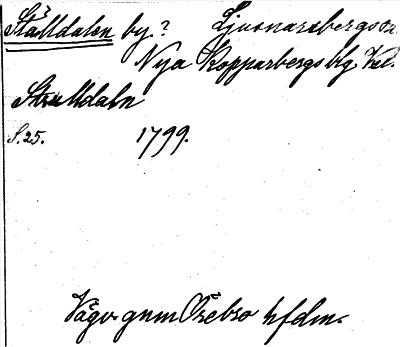 Ställdalen by? Ljusnarsbergs sn.
Nya Kopparbergs blg Vel.
Strälldaln
S. 25. 1799.
Vägv. gnm Örebro hfdm.